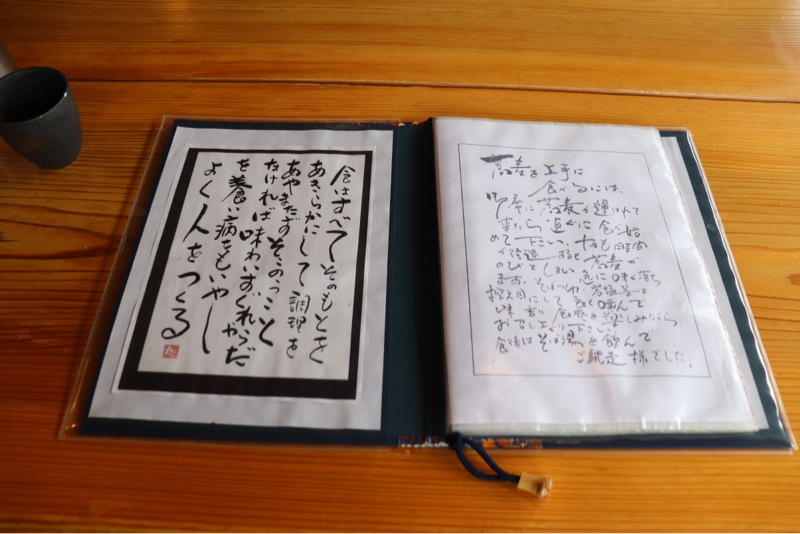 食はすべてそのもとを
あきらかにして調理を
あやまたずそこのうこと
なければ味わいすぐれからだ
を養い病をもいやし
よく人をつくる
蕎麦を上手に
食べるには、
御席に蕎麦が運ばれて
来たら直ぐに食べ始
めて下さい。も時間
が経過すると蕎麦が
のびてしまい急に味が落ち
ます。そばつゆ、は
控え目にして良く噛んで
味、香り、食感を楽しみながら
お召し上り下さい。
食後はそば湯を飲んで
ご馳走様でした。